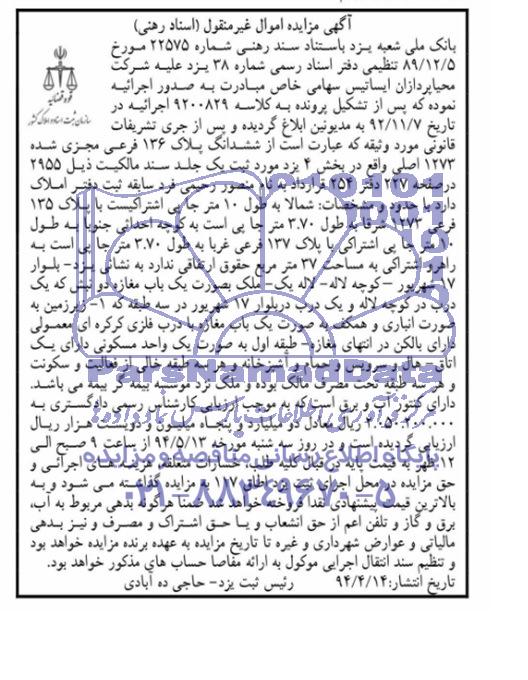 آگهی مزایده اموال غیرمنقول (اسناد رهنی)
بانک ملی شعبه یزد باستناد سند رهنی شماره ۲۲۵۷۵ مورخ
۸۹/۱۲/۵ تنظیمی دفتر اسناد رسمی شماره ۳۸ یزد علیه شرکت
محیاپردازان ایساتیس سهامی خاص مبادرت به صدور اجرائیه
نموده که پس از تشکیل پرونده به کلاسه ۹۲۰۰۸۲۹ اجرائیه در
تاریخ ۹۲/۱۱/۷ به مدیونین ابلاغ گردیده و پس از جری تشریفات
قوه قضائیه
سازمان ثبت اسناد و املاک کشور
قانونی مورد وثیقه که عبارت است از ششدانگ پلاک ۱۳۶ فرعی مجزی شده
۱۲۷۳ اصلی واقع در بخش ۴ یزد مورد ثبت یک جلد سند مالکیت ذیل ۲۹۵۵
درصفحه ۲۲۷ دفتر ۲۵۴ قرارداد به نام منصور رحیمی فرد سابقه ثبت دفتر املاک
دارد با حدود و مشخصات: شمالا به طول ۱۰ متر جا پی اشتراکیست با پلاک ۱۳۵
فرعی ۱۲۷۳ شرقا به طول ۳.۷۰ متر جا پی است به کوچه احداثی جنوبا به طول
۱۰ متر جا پی اشتراکی با پلاک ۱۳۷ فرعی غربا به طول ۳.۷۰ متر جا پی است به
راهرو اشتراکی به مساحت ۳۷ متر مربع حقوق ارتفاقی ندارد به نشانی یزد- بلوار
۱۷ شهریور -کوچه لاله- لاله یک- ملک بصورت یک باب مغازه دو نبش که یک
درب در کوچه لاله و یک درب دربلوار ۱۷ شهریور در سه طبقه که ۱- زیرزمین به
صورت انباری و همکف به صورت یک باب مغازه با درب فلزی کرکره ای معمولی
دارای بالکن در انتهای مغازه- طبقه اول به صورت یک واحد مسکونی دارای یک
اتاق- هال و سرویس و حمام و آشپزخانه و هر سه طبقه خالی از فعالیت و سکونت
و هر سه طبقه تحت تصرف مالک بوده و ملک نزد موسسه بیمه گر بیمه می باشد.
دارای کنتور آب و برق است که به موجب ارزیابی کارشناس رسمی دادگستری به
۲.۰۵۰.۲۰۰.۰۰۰ ریال معادل دو میلیارد و پنجاه میلیون و دویست هزار ریال
ارزیابی گردیده است و در روز سه شنبه مورخه ۹۴/۵/۱۳ از ساعت ۹ صبح الی
۱۲ ظهر به قیمت پایه در قبال کلیه طلب، خسارات متعلقه، هزینه های اجرائی و
حق مزایده در محل اجرای ثبت یزد اطاق ۱۱۷ به مزایده گذاشته می شود و به
بالاترین قیمت پیشنهادی نقدا فروخته خواهد شد ضمنا هرگونه بدهی مربوط به آب،
برق و گاز و تلفن اعم از حق انشعاب و یا حق اشتراک و مصرف و نیز بدهی
مالیاتی و عوارض شهرداری و غیره تا تاریخ مزایده به عهده برنده مزایده خواهد بود
و تنظیم سند انتقال اجرایی موکول به ارائه مفاصا حساب های مذکور خواهد بود.
تاریخ انتشار: ۹۴/۴/۱۴ رئیس ثبت یزد- حاجی ده آبادی
ParsNamadData
پایگاه اطلاع رسانی مناقصه و مزایده
۰۲۱-۸۸۳۴۹۶۷۰-۵